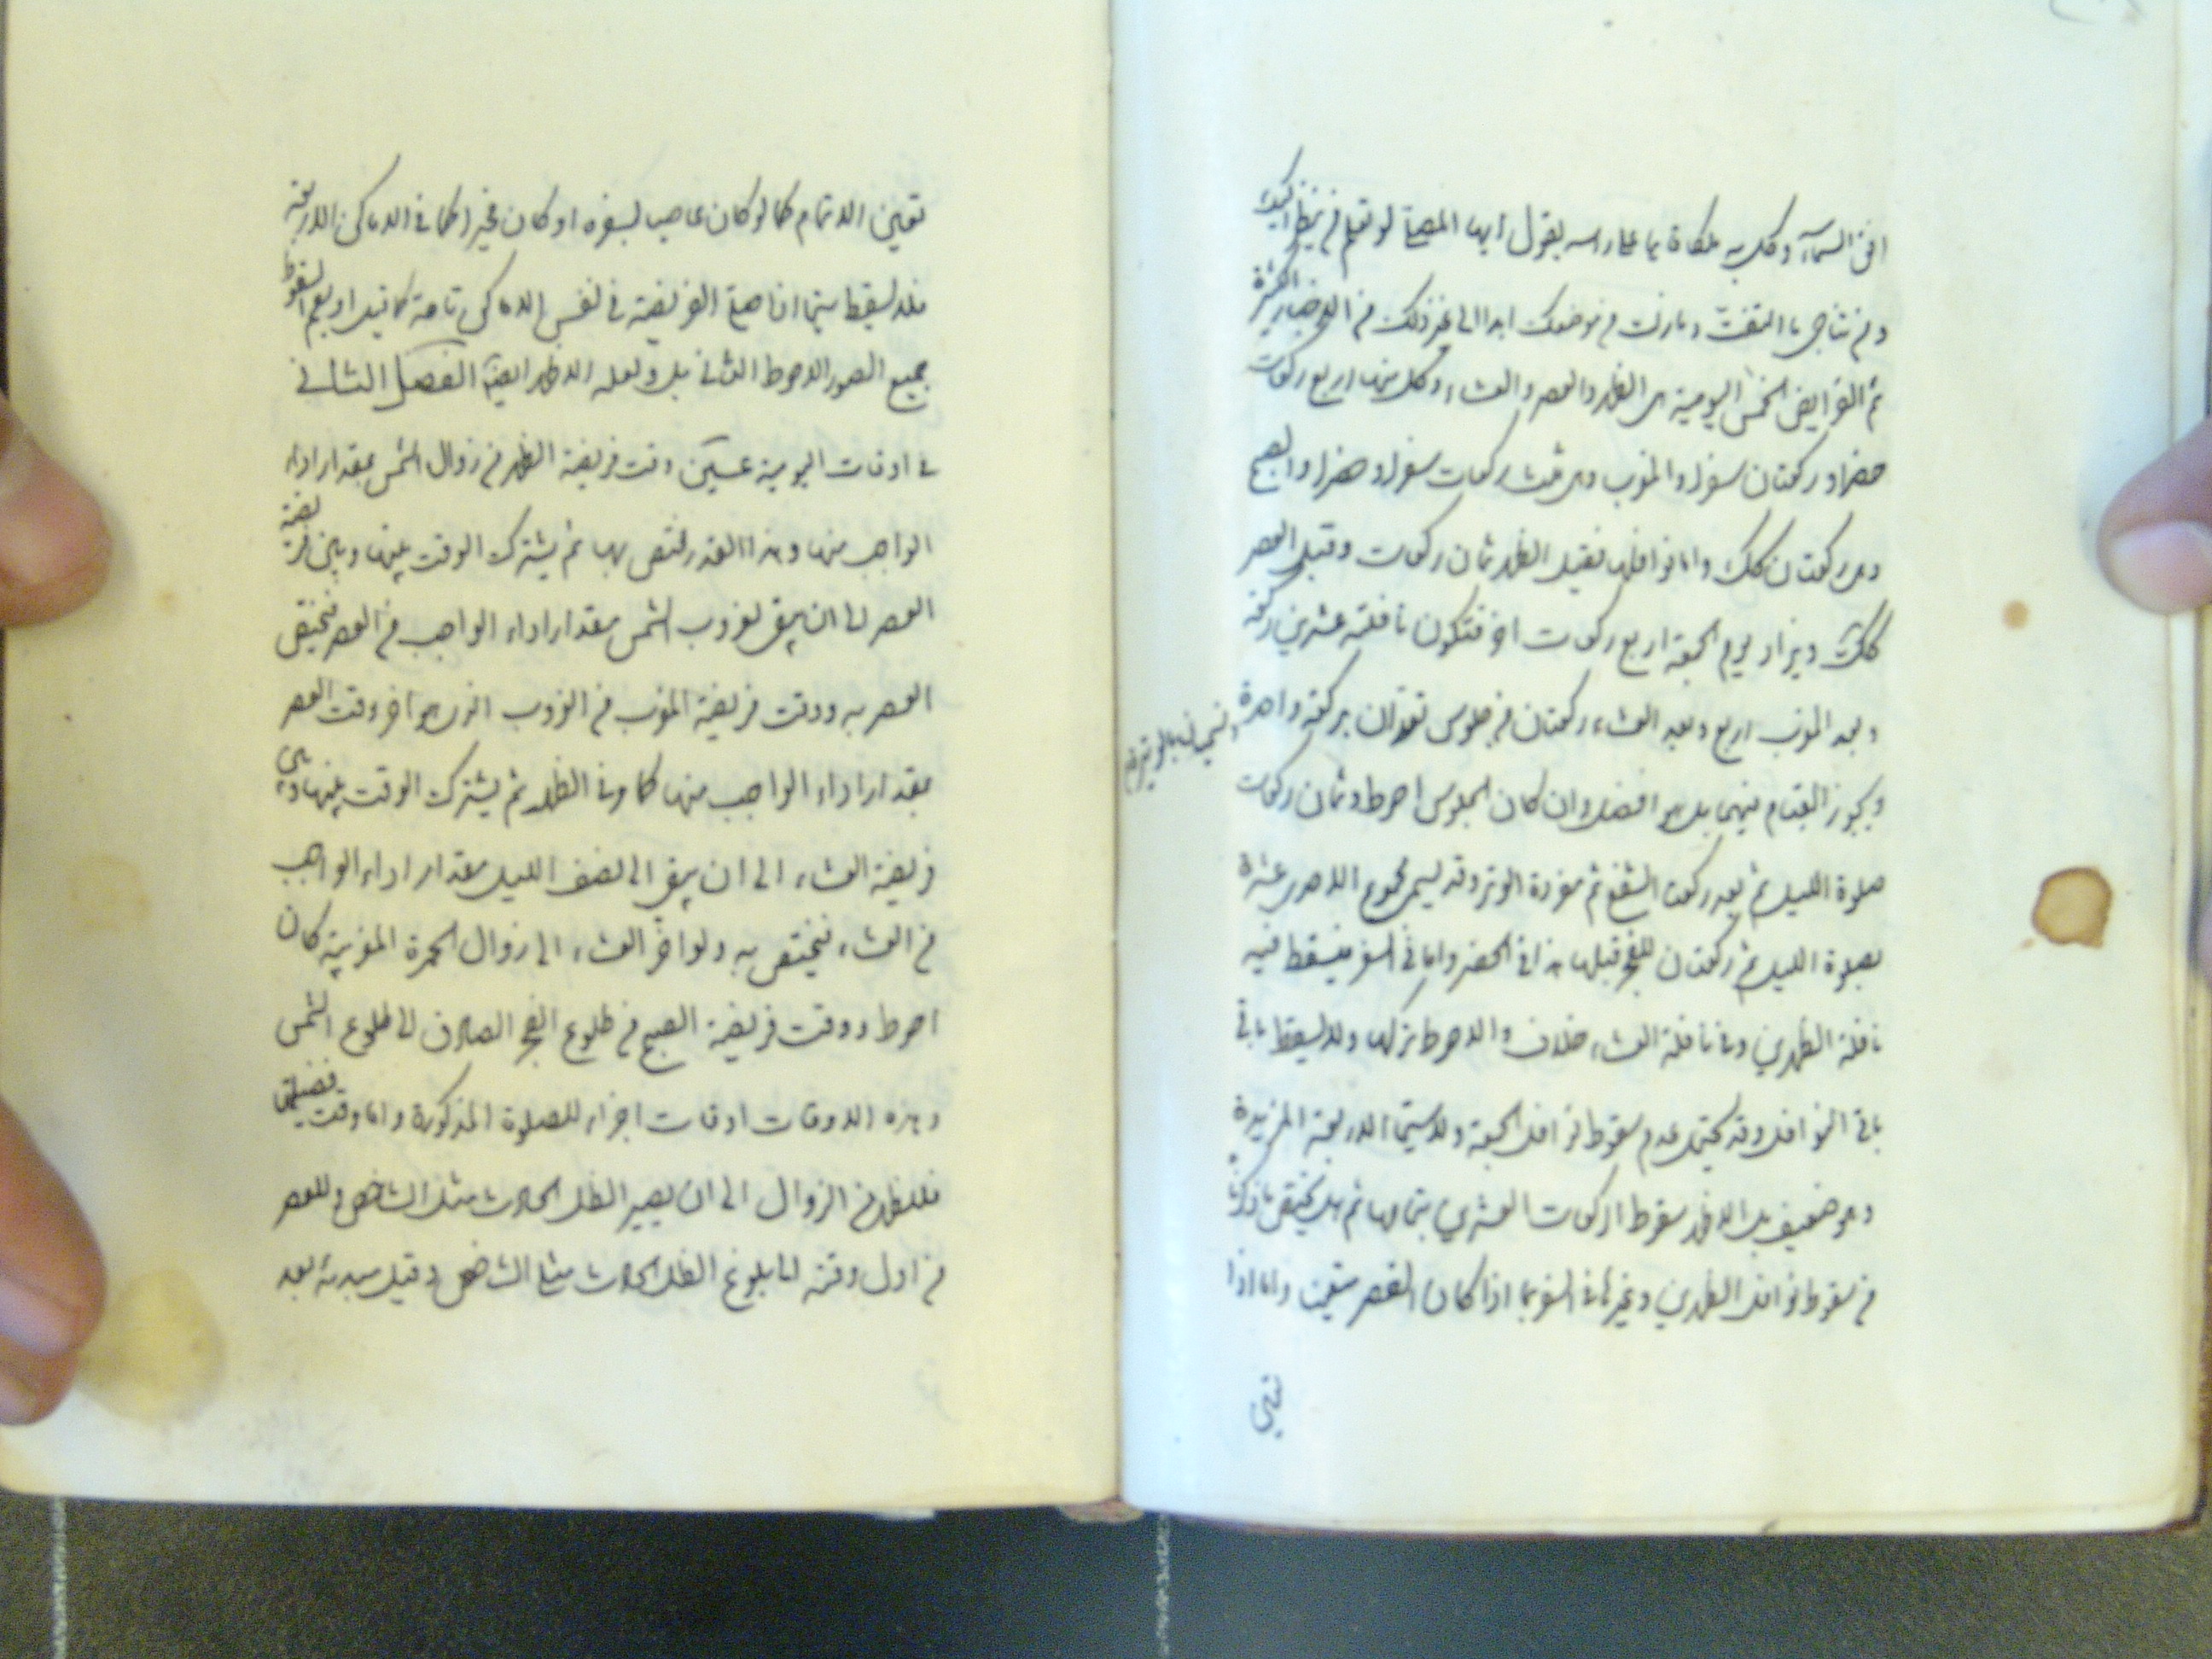 افق السماء وكل به ملكا قائما على راسه يقول ايها المصلي لو تعلم من ينظر اليك
ومن تناجي ما التفت وما زلت من موضعك ابدا الى غير ذلك من الاخبار الكثيرة
ثم الفرايض الخمس اليومية هي الظهر والعصر والعشاء وكل منها اربع ركعات
حضرا وركعتان سفرا والمغرب وهي ثلث ركعات سفرا وحضرا والصبح
وهي ركعتان كذلك واما نوافلها فقبل الظهر ثمان ركعات وقبل العصر
كذلك ويزاد يوم الجمعة اربع ركعات اخر فتكون نافلته عشرين ركعة
وبعد المغرب اربع وبعد العشاء ركعتان من جلوس تعدان بركعة واحدة
وتسميان بالوتيرة
ويجوز القيام فيهما بل هو افضل وان كان الجلوس احوط وثمان ركعات
صلوة الليل ثم بعد ركعتا الشفع ثم مفردة الوتر وقد يسمى مجموع الاحدى عشرة
بصلوة الليل ثم ركعتان للفجر قبلها هذا في الحضر واما في السفر فيسقط فيه
نافلة الظهرين وفي نافلة العشاء خلاف والاحوط تركها ولا يسقط باقي
باقي النوافل وقد يحتمل عدم سقوط نوافل الجمعة ولا سيما الاربعة المزيدة
وهو ضعيف بل الاظهر سقوط الركعات العشرين بتمامها ثم هل يختص ما ذكرنا
من سقوط نوافل الظهرين وغيرها في السفر بما اذا كان القصر متعين واما اذا
تعين
تعين الاتمام كما لو كان عاصيا لسفره او كان مخيرا كما في الاماكن الاربعة
فلا يسقط سيما اذا صلى الفريضة في نفس الاماكن تامة كما قيل او يعم السقوط
جميع الصور الاحوط الثاني بل ولعله الاظهر ايضا الفصل الثاني
في اوقات اليومية وقت فريضة الظهر من زوال الشمس بمقدار اداء
الواجب منها وهذا القدر يختص بها ثم يشترك الوقت بينها وبين فريضة
العصر الى ان يبقى لغروب الشمس مقدار اداء الواجب من العصر فيختص
العصر به ووقت فريضة المغرب من الغروب الذي هو اخر وقت العصر
بمقدار اداء الواجب منها كما في الظهر ثم يشترك الوقت بينها وبين
فريضة العشاء الى ان يبقى الى نصف الليل مقدار اداء الواجب
من العشاء فيختص به ولو اخر العشاء الى زوال الحمرة المغربية كان
احوط ووقت فريضة الصبح من طلوع الفجر الصادق الى طلوع الشمس
وهذه الاوقات اوقات اجزاء للصلوة المذكورة واما وقت فضيلتها
فللظهر من الزوال الى ان يصير الظل الحادث مثل الشاخص وللعصر
من اول وقته الى بلوغ الظل الحادث مثلي الشاخص وقيل مبدئه بعد